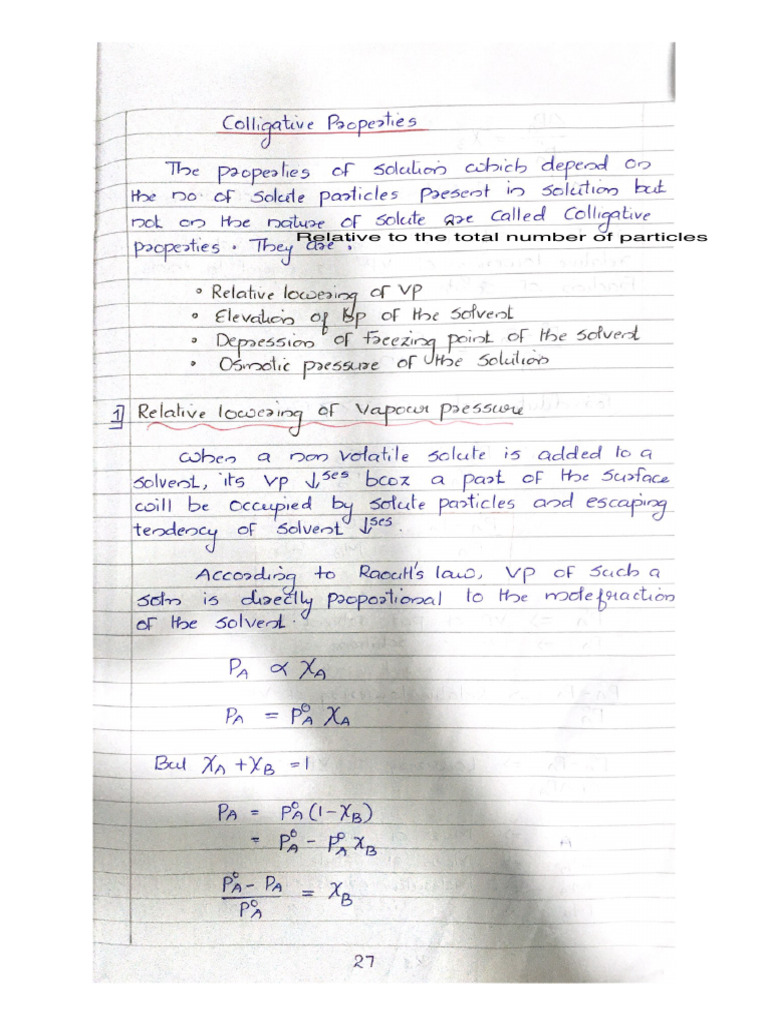 Colligative Properties
The properties of solution which depend on
the no. of solute particles present in solution but
not on the nature of solute are called Colligative
properties. They are,
Relative to the total number of particles
• Relative lowering of VP
• Elevation of bp of the solvent
• Depression of freezing point of the solvent
• Osmotic pressure of the solution
1] Relative lowering of Vapour pressure
When a non volatile solute is added to a
solvent, its VP ↓ses bcoz a part of the surface
will be occupied by solute particles and escaping
tendency of solvent ↓ses.
According to Raoult's law, VP of such a
soln is directly proportional to the mole fraction
of the solvent.
P_A ∝ χ_A
P_A = P°_A χ_A
But χ_A + χ_B = 1
P_A = P°_A (1-χ_B)
= P°_A - P°_A χ_B
(P°_A - P_A) / P°_A = χ_B
27